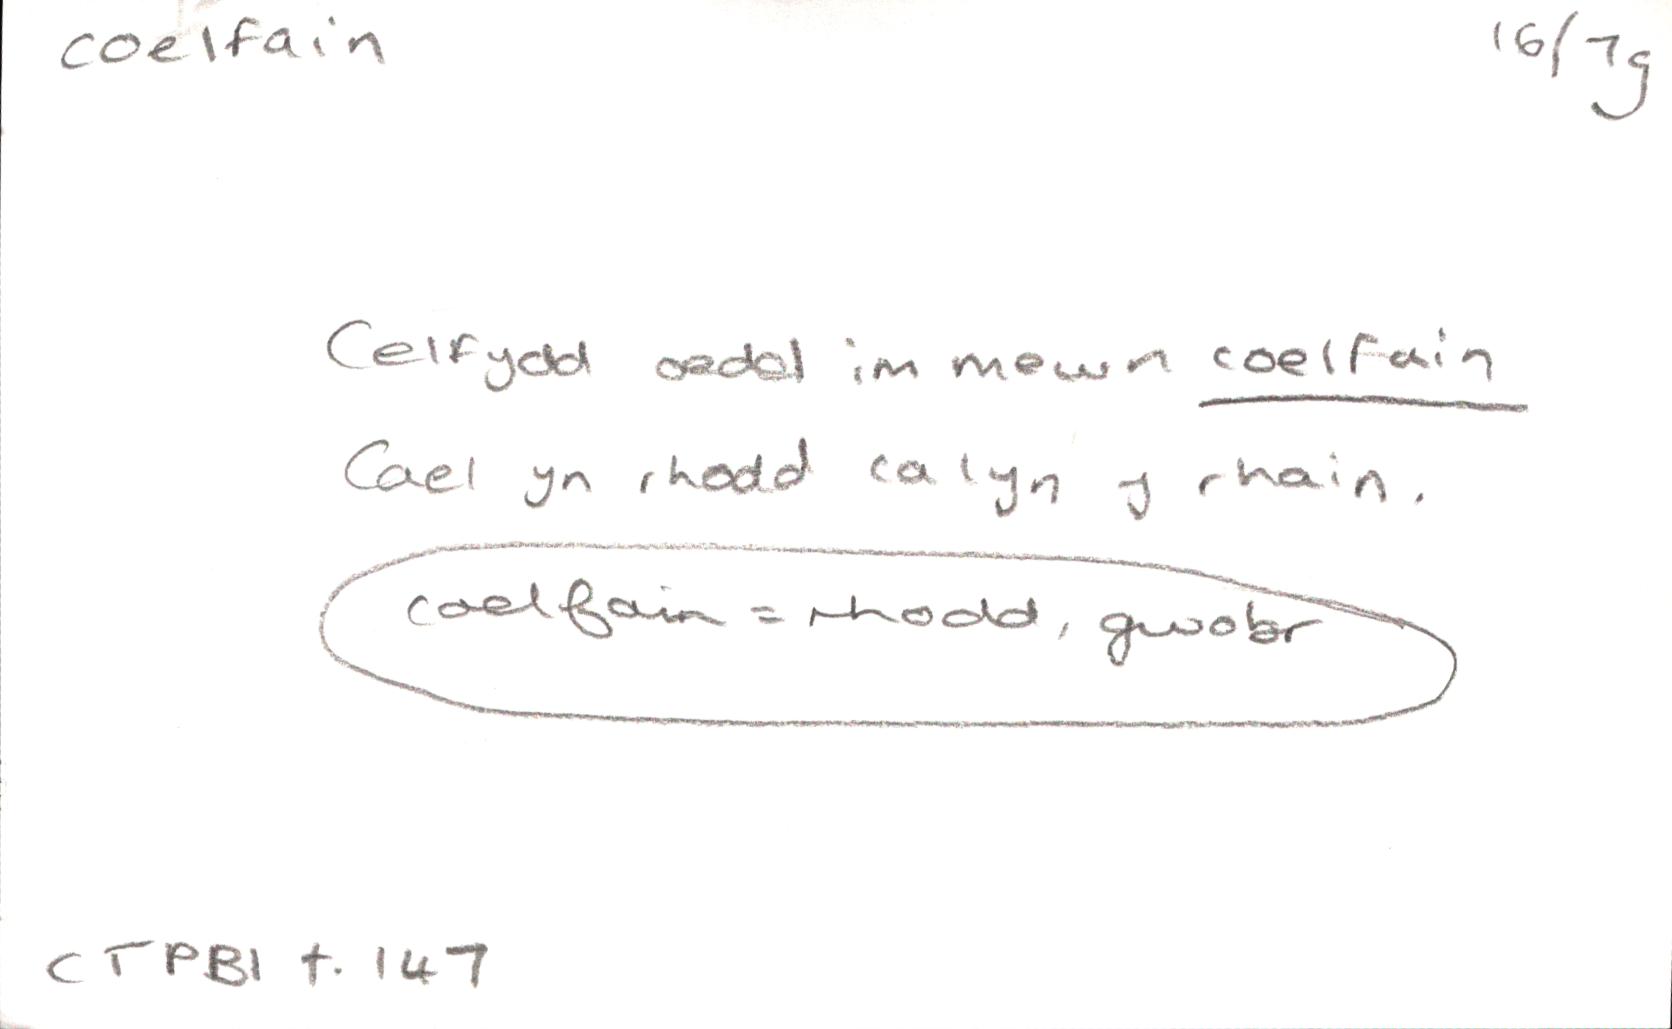 coelfain
16/7g
Celfydd oedd im mewn coelfain
Cael yn rhodd calyn y rhain.
coelfain = rhodd, gwobr
CTPB1 t. 147